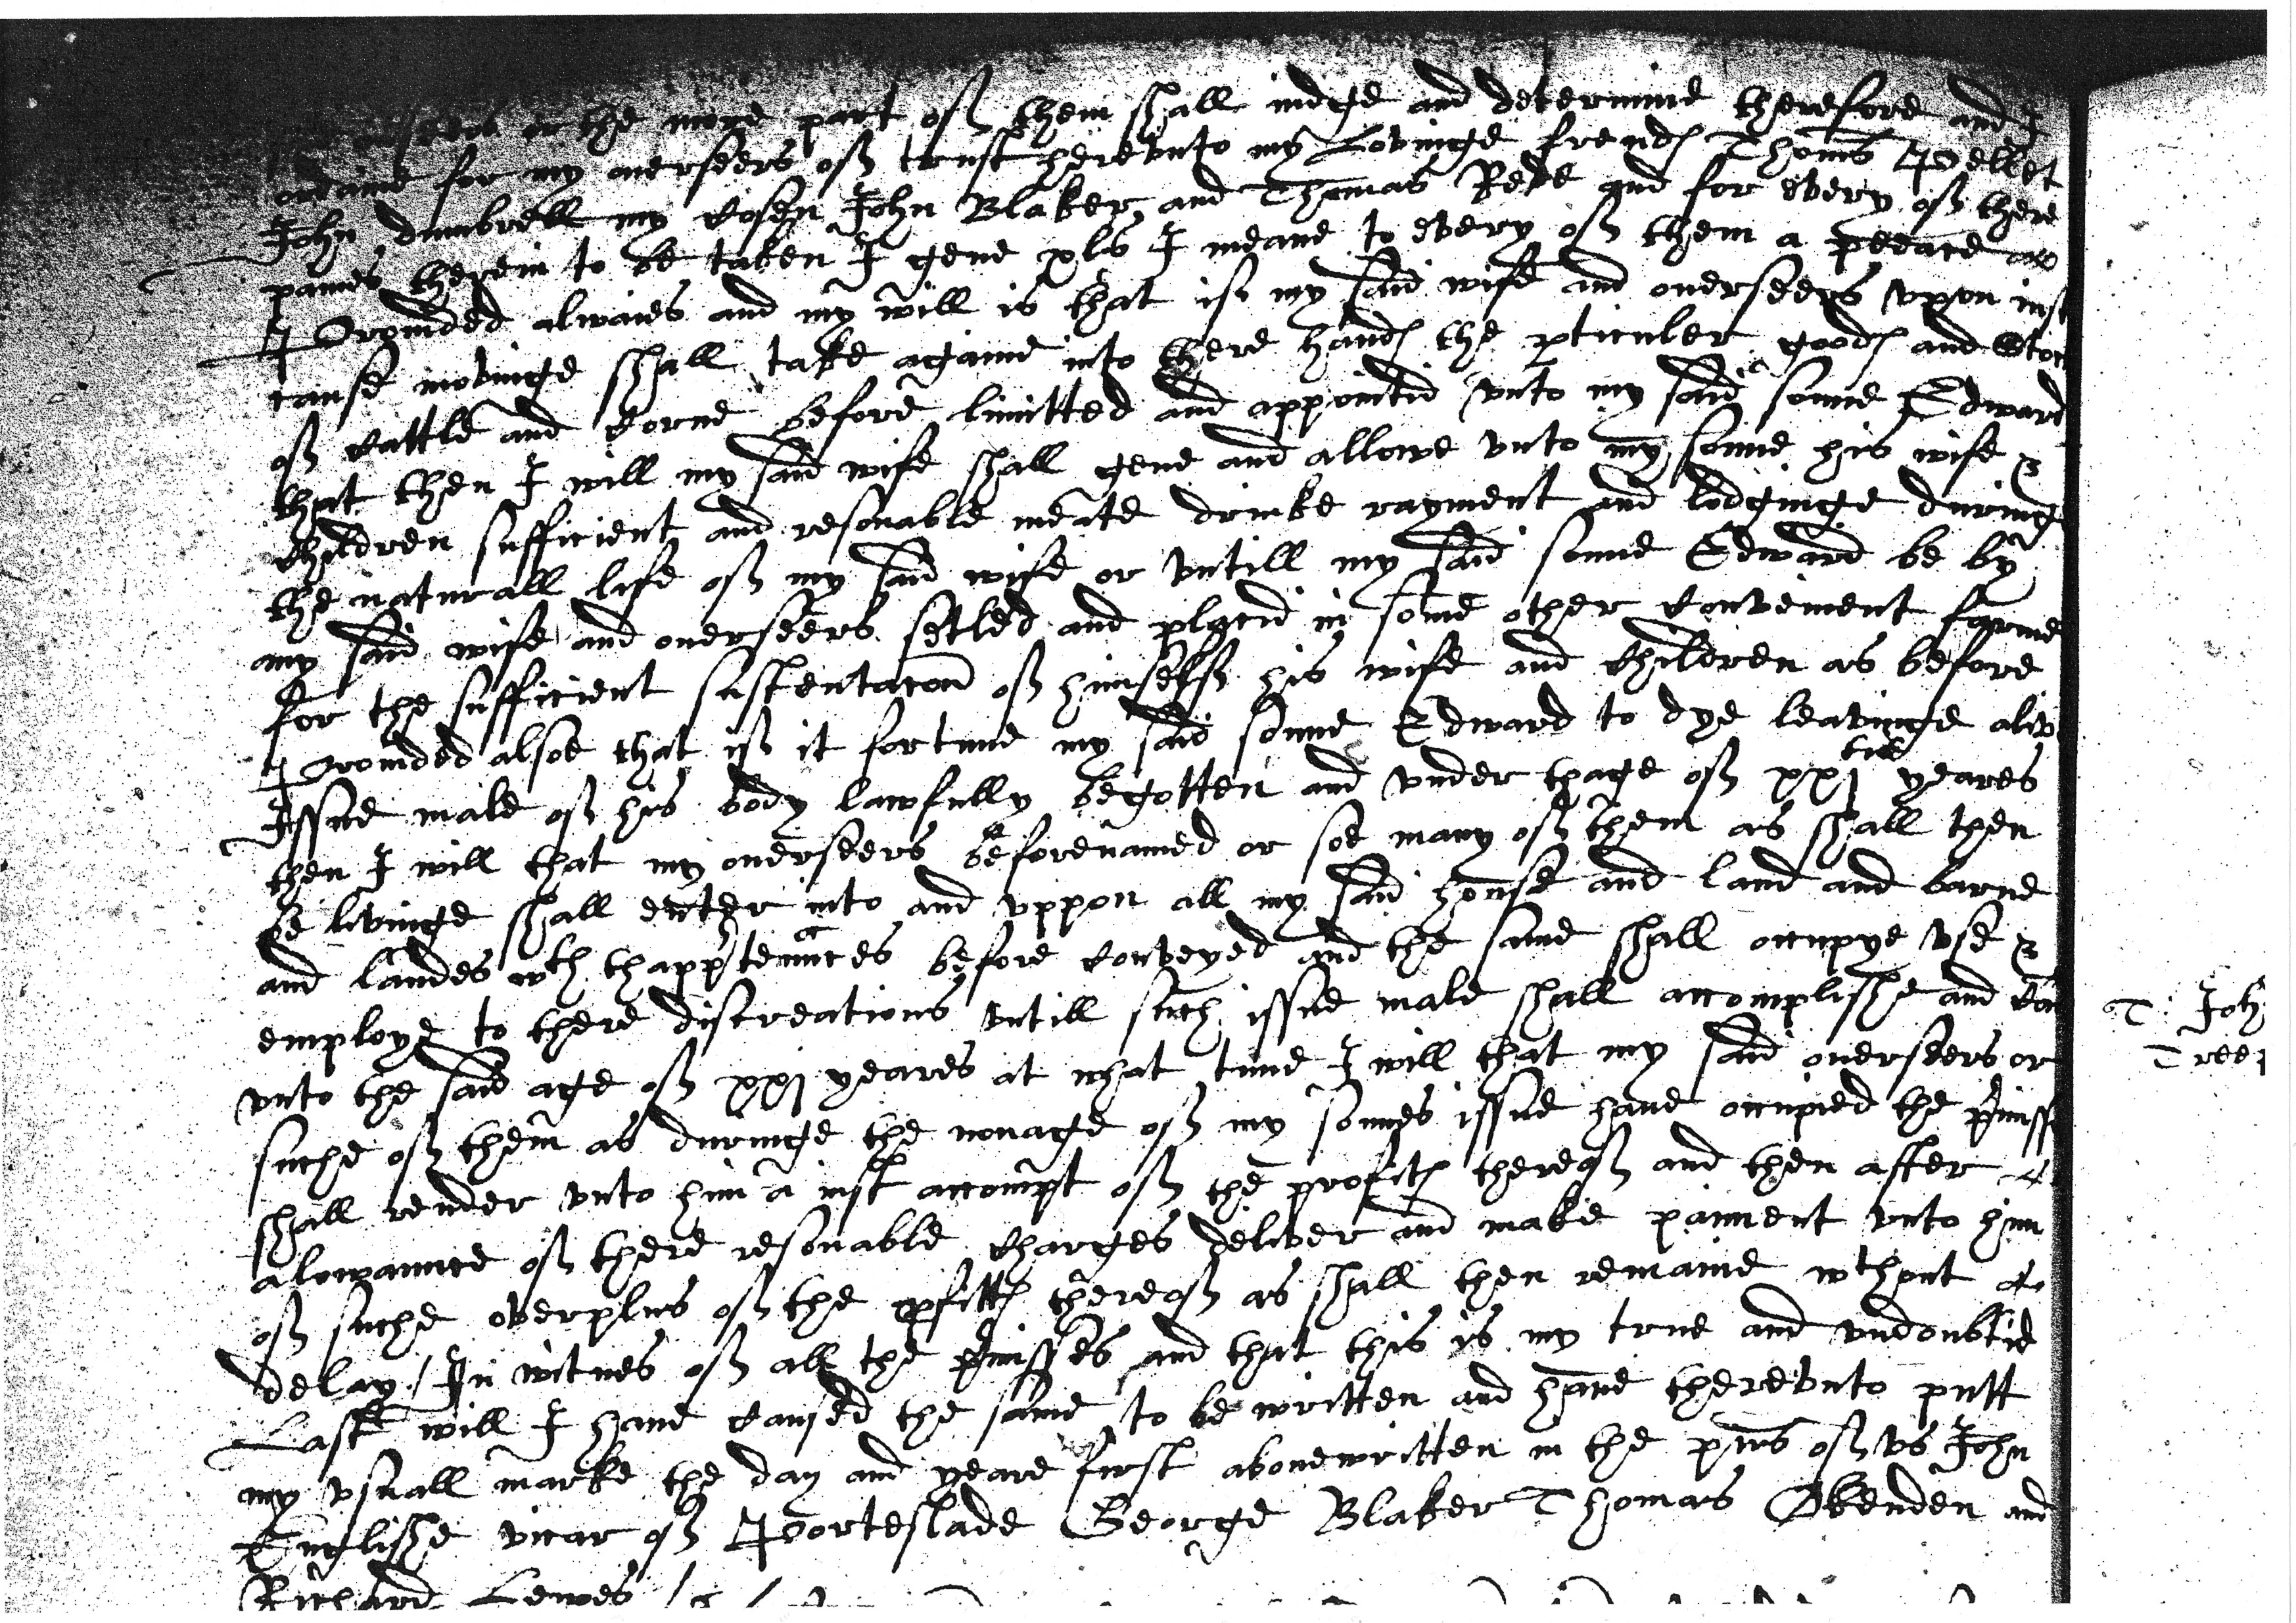 or the more part of them shall iudge and determine therefore and I
ordaine for my ouerseers of trust herevnto my Lovinge frends Thoms Pellet
John dumbrell my Cosen John Blaker and Thomas Reve and for every of there
paines herein to be taken I geue xls I meane to every of them a peeace
Prouided alwaies and my will is that if my said wife and ouerseers vpon iust
cause movinge shall take againe into there hands the pticuler goods and Stoc
of Cattle and Corne before limitted and appointid vnto my said sonne Edward
that then I will my said wife shall geue and allowe vnto my sonne his wife &
Children sufficient and resonable meate drinke rayment and lodginge during
the naturall life of my said wife or vntill my said sonne Edward be by
my said wife and ouerseers setled and placid in some other Convenient farme
for the sufficient sustentacon of himself his wife and Children as before
Prouided alsoe that if it fortune my said sonne Edward to dye leavinge aliv
Issue male of his body lawfully begotten and vnder thage of xxj tie yeares
then I will that my ouerseers beforenamed or soe many of them as shall then
be livinge shall enter into and vppon all my said house and land and barne
and landes wth thapptennces before Conveyed and the same shall occupye vse &
employe to there discreations vntill such issue male shall accomplishe and Com
vnto the said age of xxj yeares at what time I will that my said ouerseers or
suche of them as duringe the nonage of my sonnes issue haue occupied the pmiss
shall render vnto him a iust accompt of the profits thereof and then after
alowaunce of there resonable Charges deliver and make paiment vnto him
of suche overplus of the pfitts thereof as shall then remaine wthout
delay / In witnes of all the pmisses and that this is my true and vndoubtid
Last will I haue Caused the same to be written and haue therevnto putt
my vsuall marke the day and yeare first abouewritten in the pns of vs John
Englishe vicar of Porteslade George Blaker Thomas Okenden and
Richard Lewes /
T: Joh
Tree